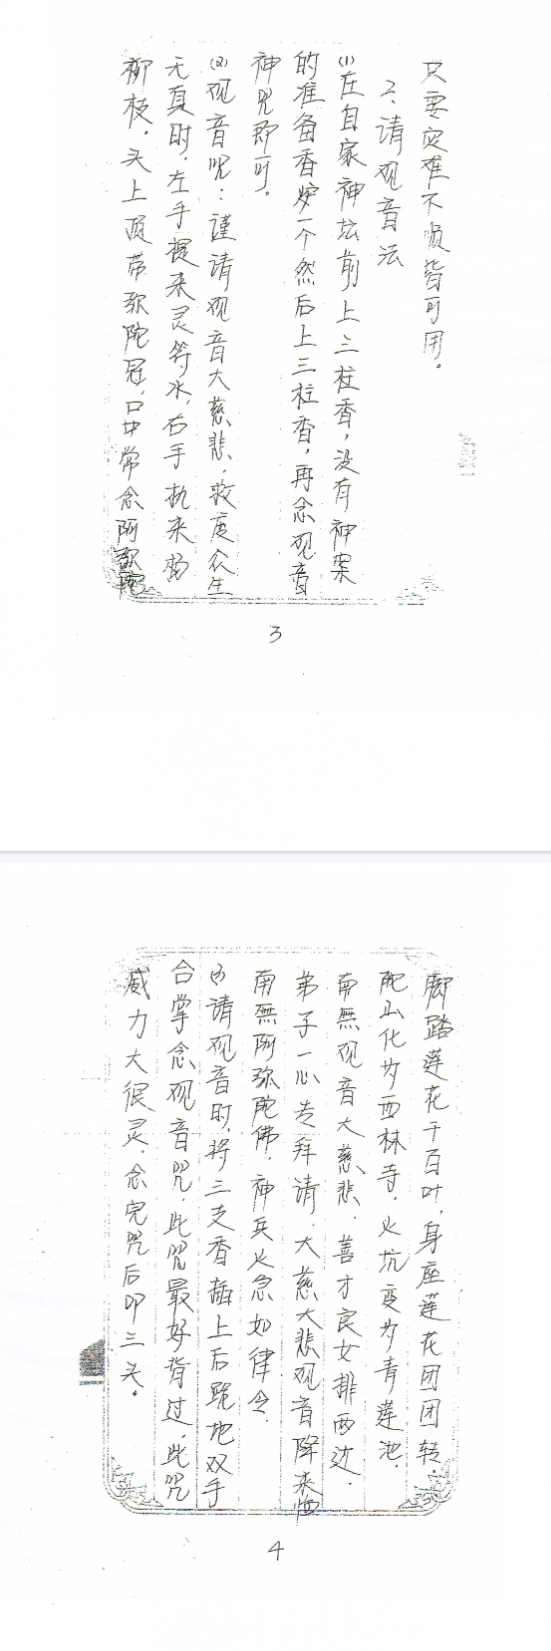 只要灾难不顺皆可用。
2、请观音法
(1)在自家神坛前上三柱香，没有神案
的准备香炉一个然后上三柱香，再念观音
神咒即可。
(2)观音咒：谨请观音大慈悲，救度众生
无真时，左手提来灵符水，右手执来杨
柳枝，头上顶带弥陀冠，口中常念阿弥陀
3
脚踏莲花千百叶，身座莲花团团转，
陀山化为西林寺，火坑变为青莲池，
南無观音大慈悲，善才良女排两边，
弟子一心专拜请，大慈大悲观音降来临
南無阿弥陀佛，神兵火急如律令，
请观音时，将三支香插上后跪地双手
合掌念观音咒，此咒最好背过，此咒
威力大很灵，念完咒后叩三头。
4